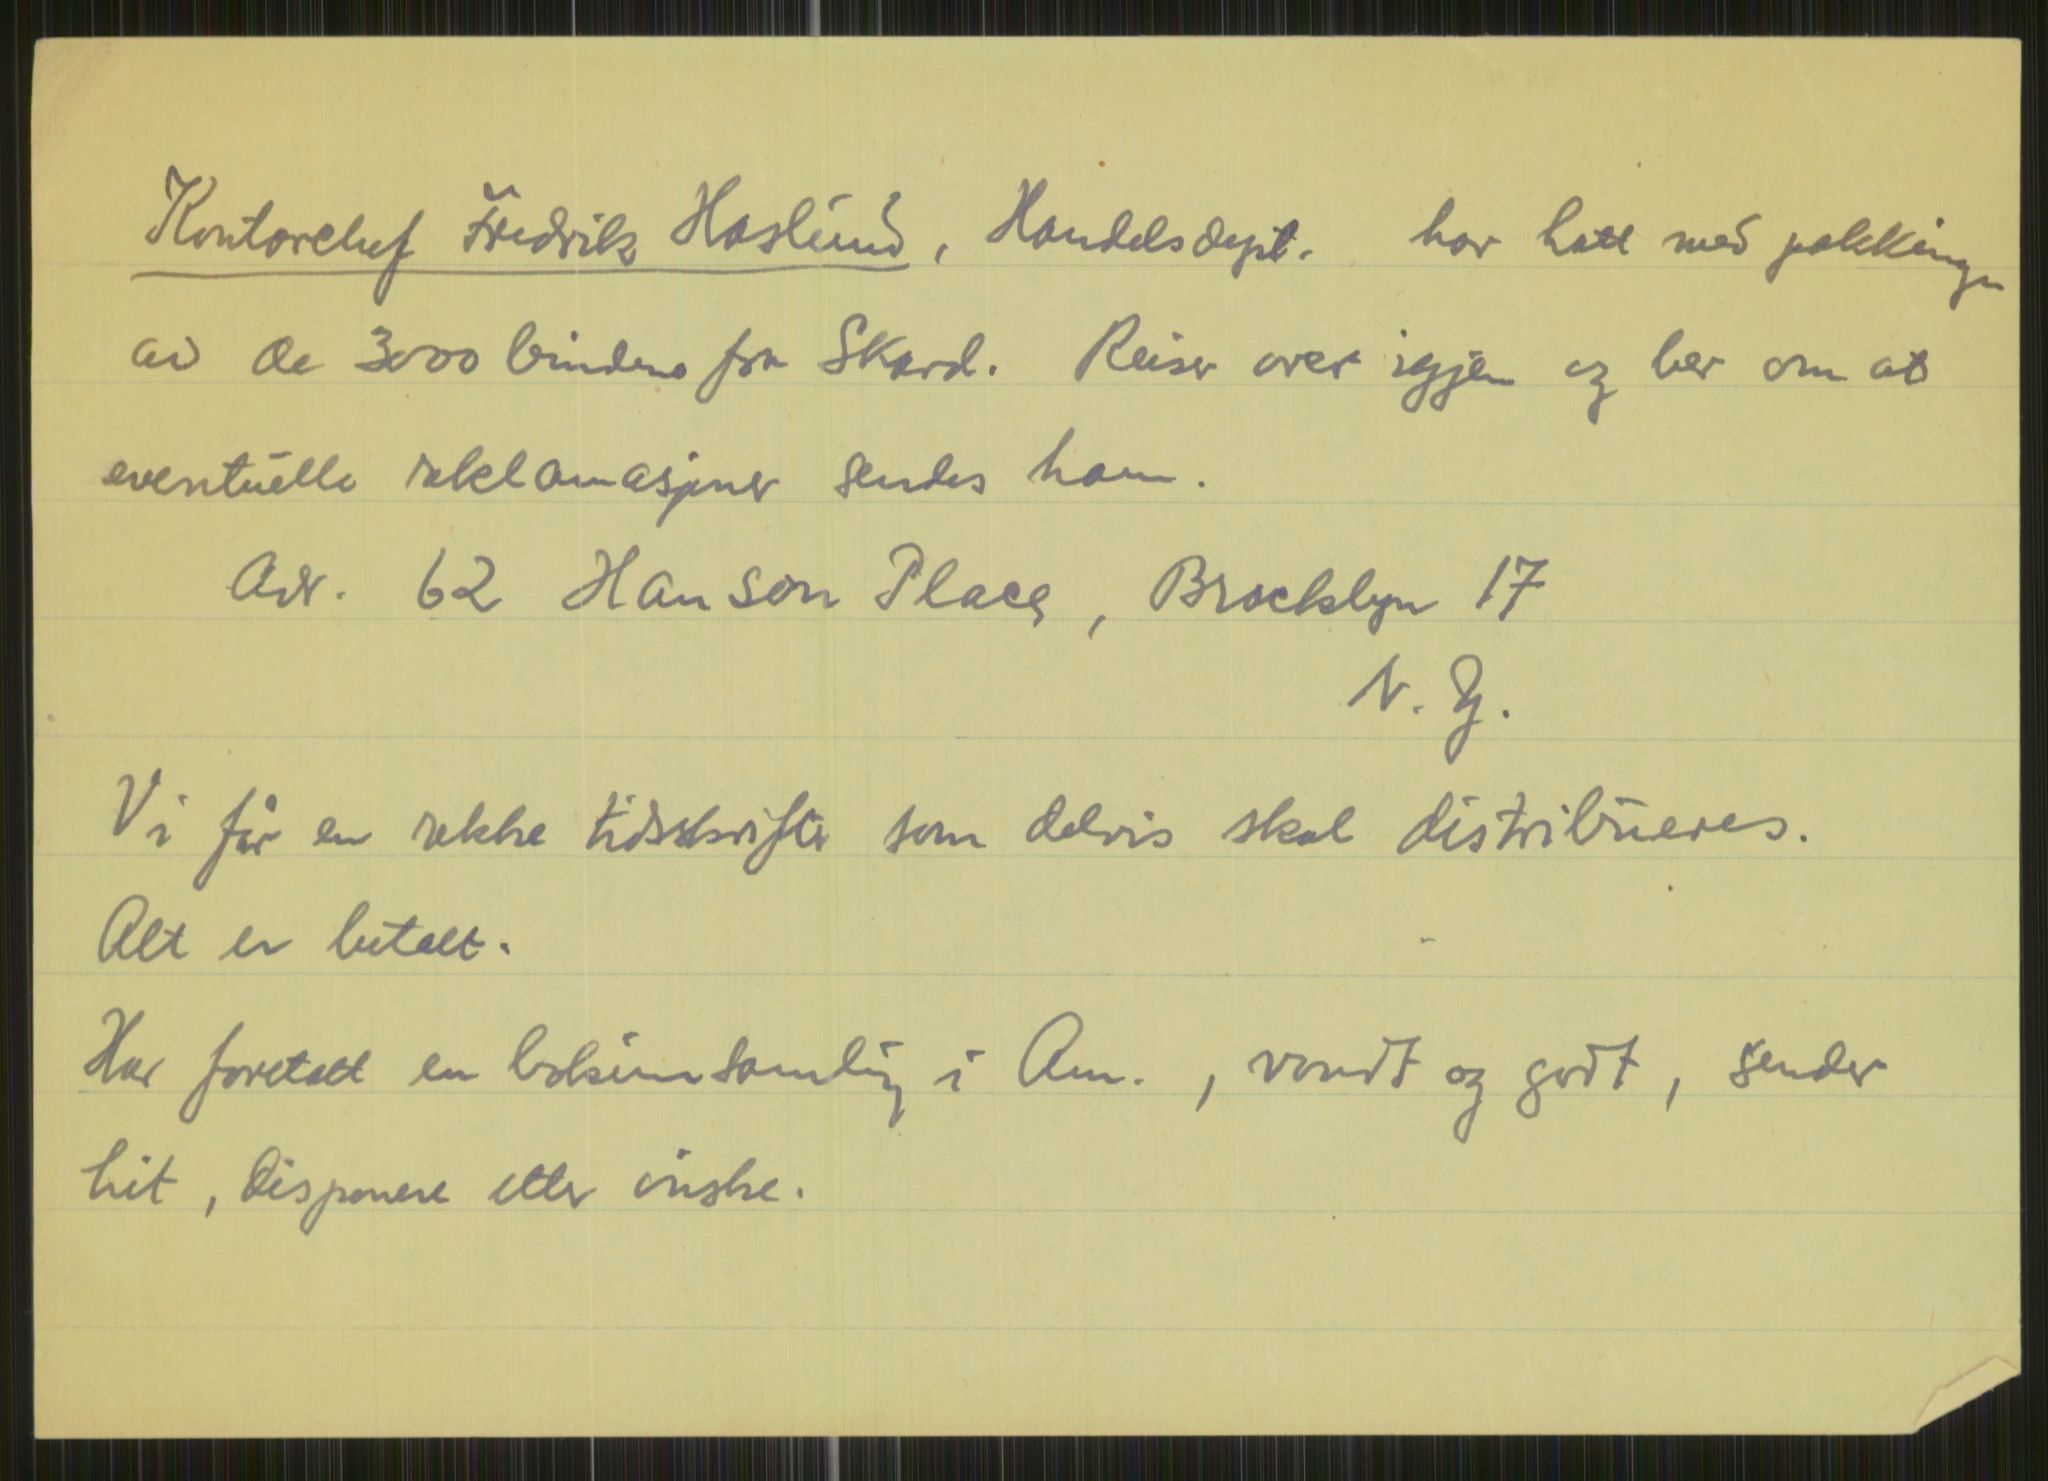 Kontorchef Fredrik Haslund, Handelsdept. har hatt med pakkingen
av de 3000 bindene fra Skard. Reiser over igjen og ber om at
eventuelle reklamasjoner sendes ham.
Adr. 62 Hanson Place, Brooklyn 17
N. Y.
Vi får en rekke tidsskrifter som delvis skal distribueres.
Alt er betalt.
Har foretatt en bokinnsamling i Am., vondt og godt, sender
hit, disponere etter ønske.